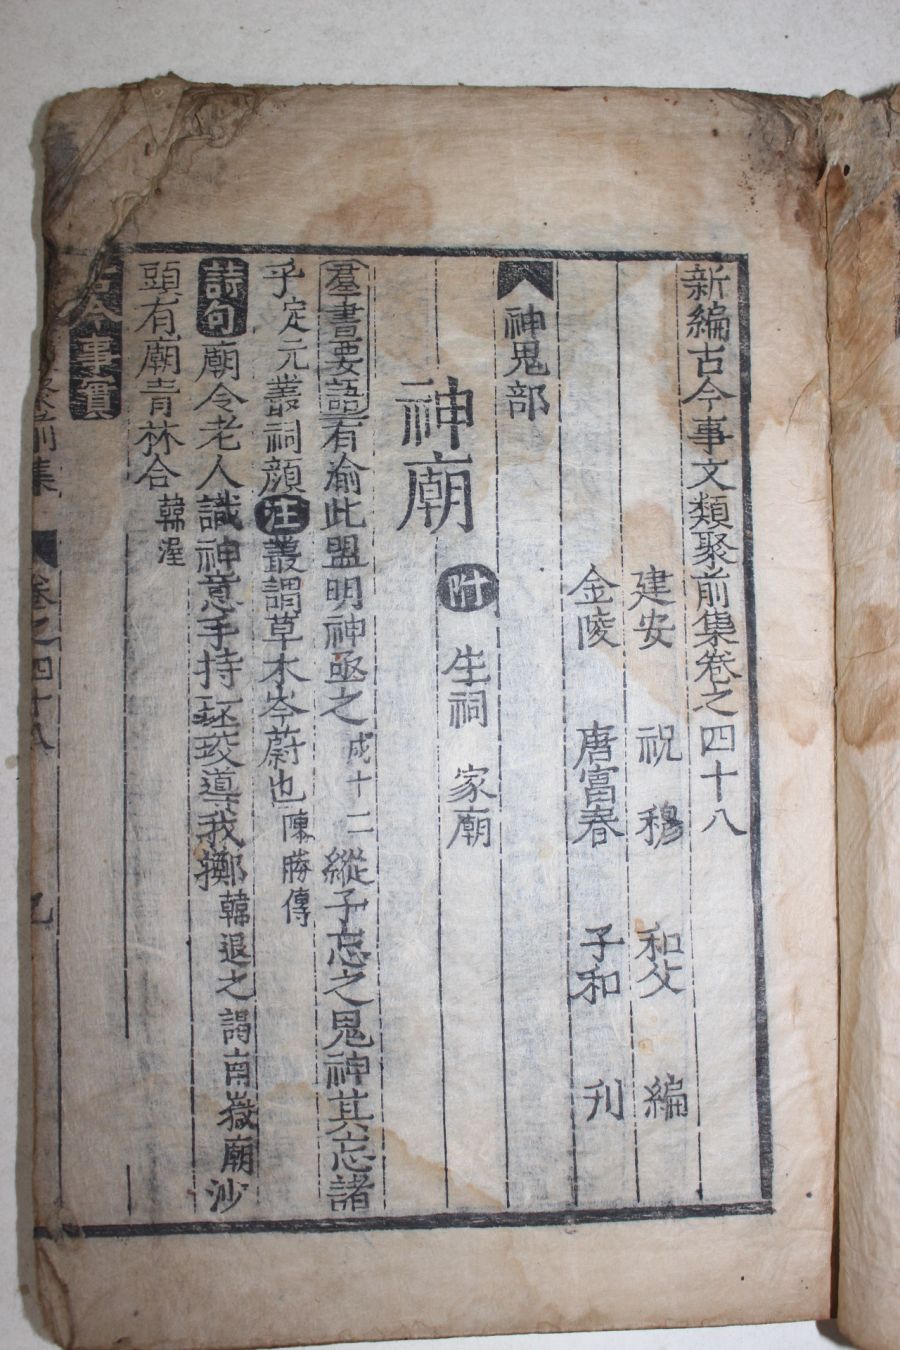 新編古今事文類聚前集卷之四十八
建安 祝穆 和父 編
金陵 唐富春 子和 刋
神鬼部
神廟
附 生祠 家廟
羣書要語 有渝此盟明神殛之 成十二 縱子忘之鬼神其忘諸
乎 定元 叢祠 顔注 叢謂草木岑蔚也 陳勝傳
詩句 廟令老人識神意手持盃珓導我擲 韓退之謁南嶽廟 沙
頭有廟青林合 韓渥
古今事實
聚前集 卷之四十八